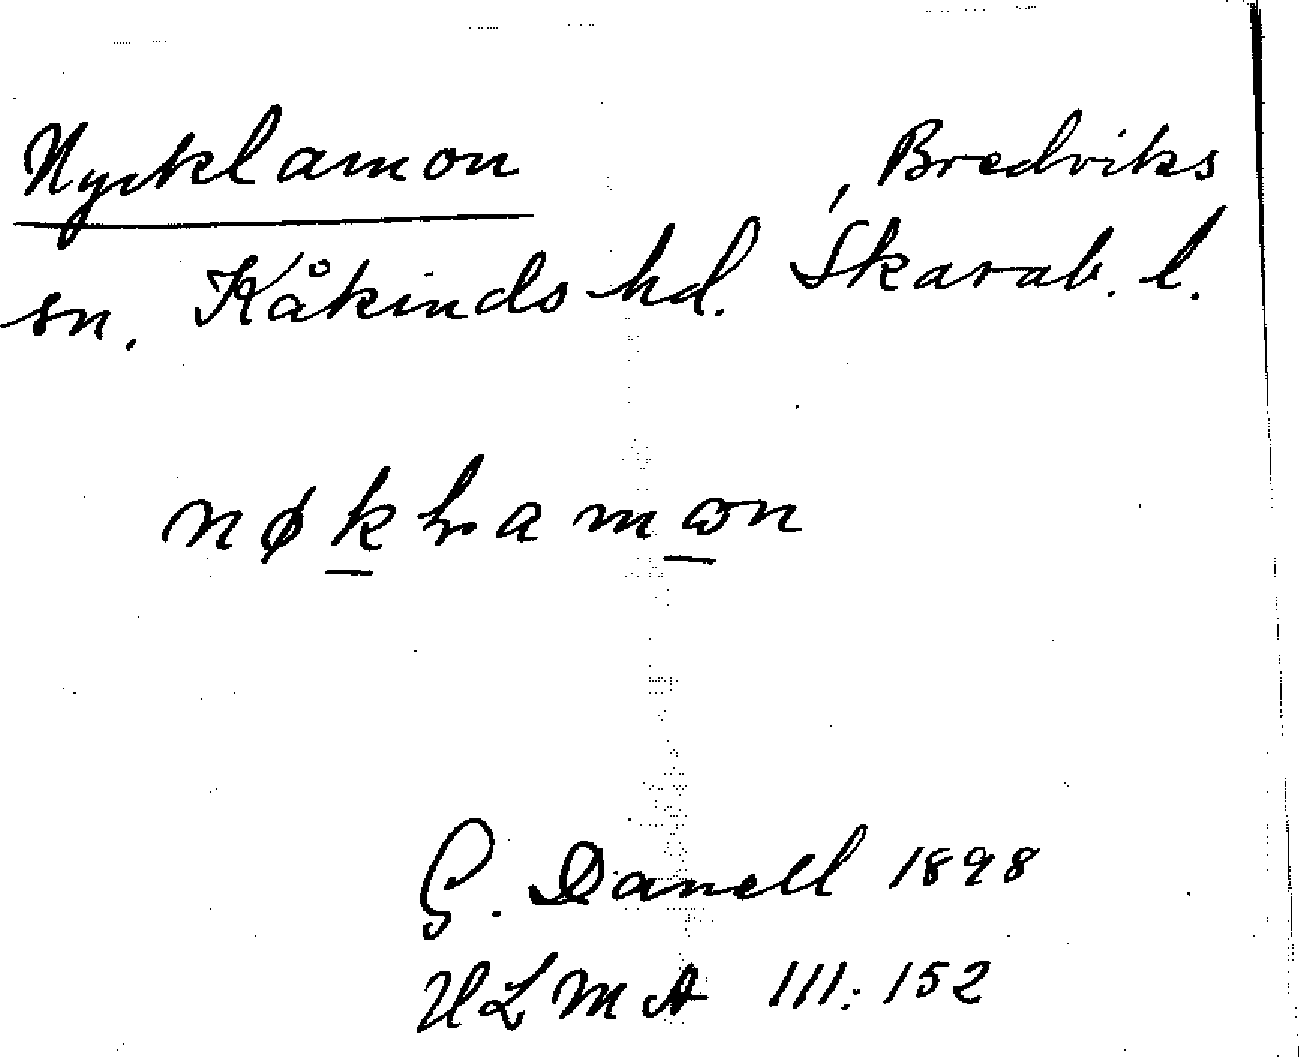 Nycklamon , Bredviks
sn. Kåkinds hd. Skarab. l.
nøklamon
G. Danell 1898
ULMA 111:152